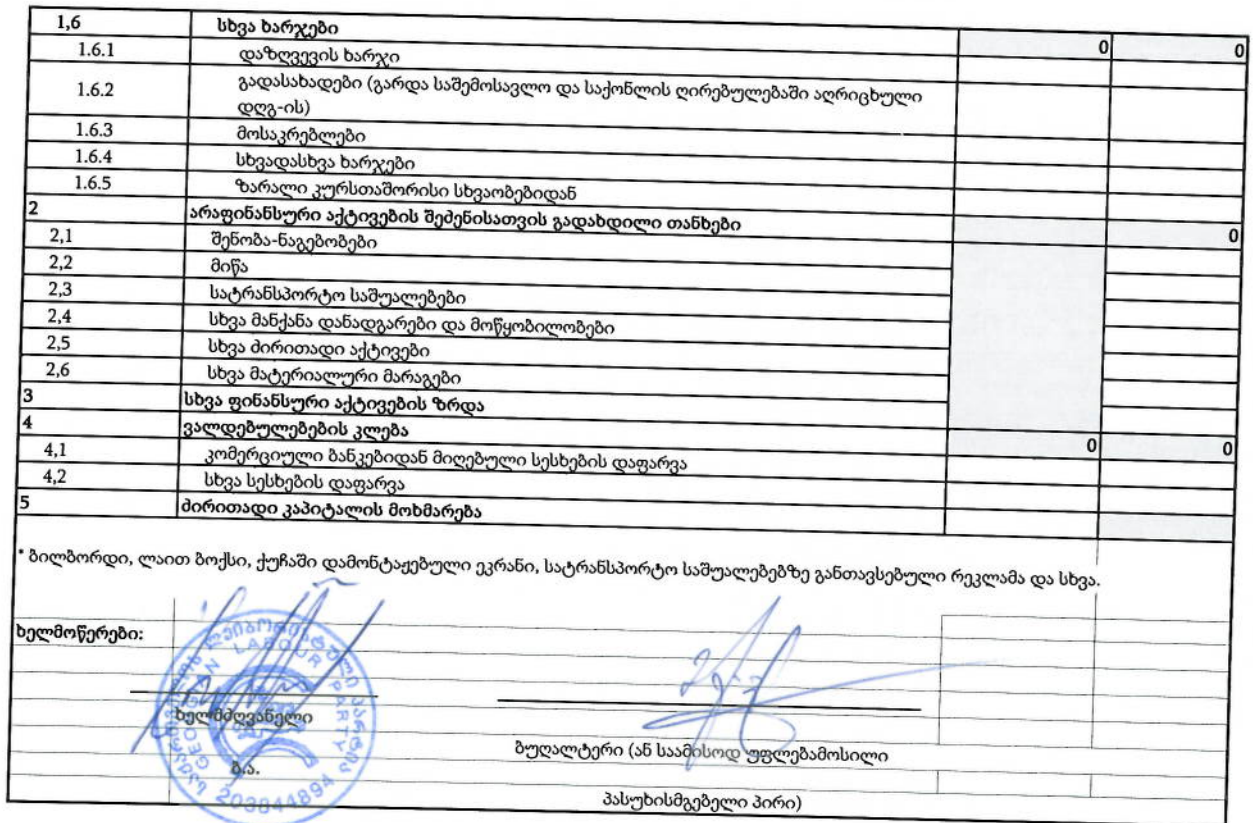 1,6 სხვა ხარჯები 0 0
1.6.1 დაზღვევის ხარჯი
1.6.2 გადასახადები (გარდა საშემოსავლო და საქონლის ღირებულებაში აღრიცხული
დღგ-ის)
1.6.3 მოსაკრებლები
1.6.4 სხვადასხვა ხარჯები
1.6.5 ზარალი კურსთაშორისი სხვაობებიდან
2 არაფინანსური აქტივების შეძენისათვის გადახდილი თანხები 0
2,1 შენობა-ნაგებობები
2,2 მიწა
2,3 სატრანსპორტო საშუალებები
2,4 სხვა მანქანა დანადგარები და მოწყობილობები
2,5 სხვა ძირითადი აქტივები
2,6 სხვა მატერიალური მარაგები
3 სხვა ფინანსური აქტივების ზრდა
4 ვალდებულებების კლება 0 0
4,1 კომერციული ბანკებიდან მიღებული სესხების დაფარვა
4,2 სხვა სესხების დაფარვა
5 ძირითადი კაპიტალის მოხმარება
* ბილბორდი, ლაით ბოქსი, ქუჩაში დამონტაჟებული ეკრანი, სატრანსპორტო საშუალებებზე განთავსებული რეკლამა და სხვა.
ხელმოწერები:
საქართველოს ლეიბორისტული პარტია
GEORGIAN LABOUR PARTY
203044894
ხელმძღვანელი
ბ.ა.
ბუღალტერი (ან საამისოდ უფლებამოსილი
პასუხისმგებელი პირი)